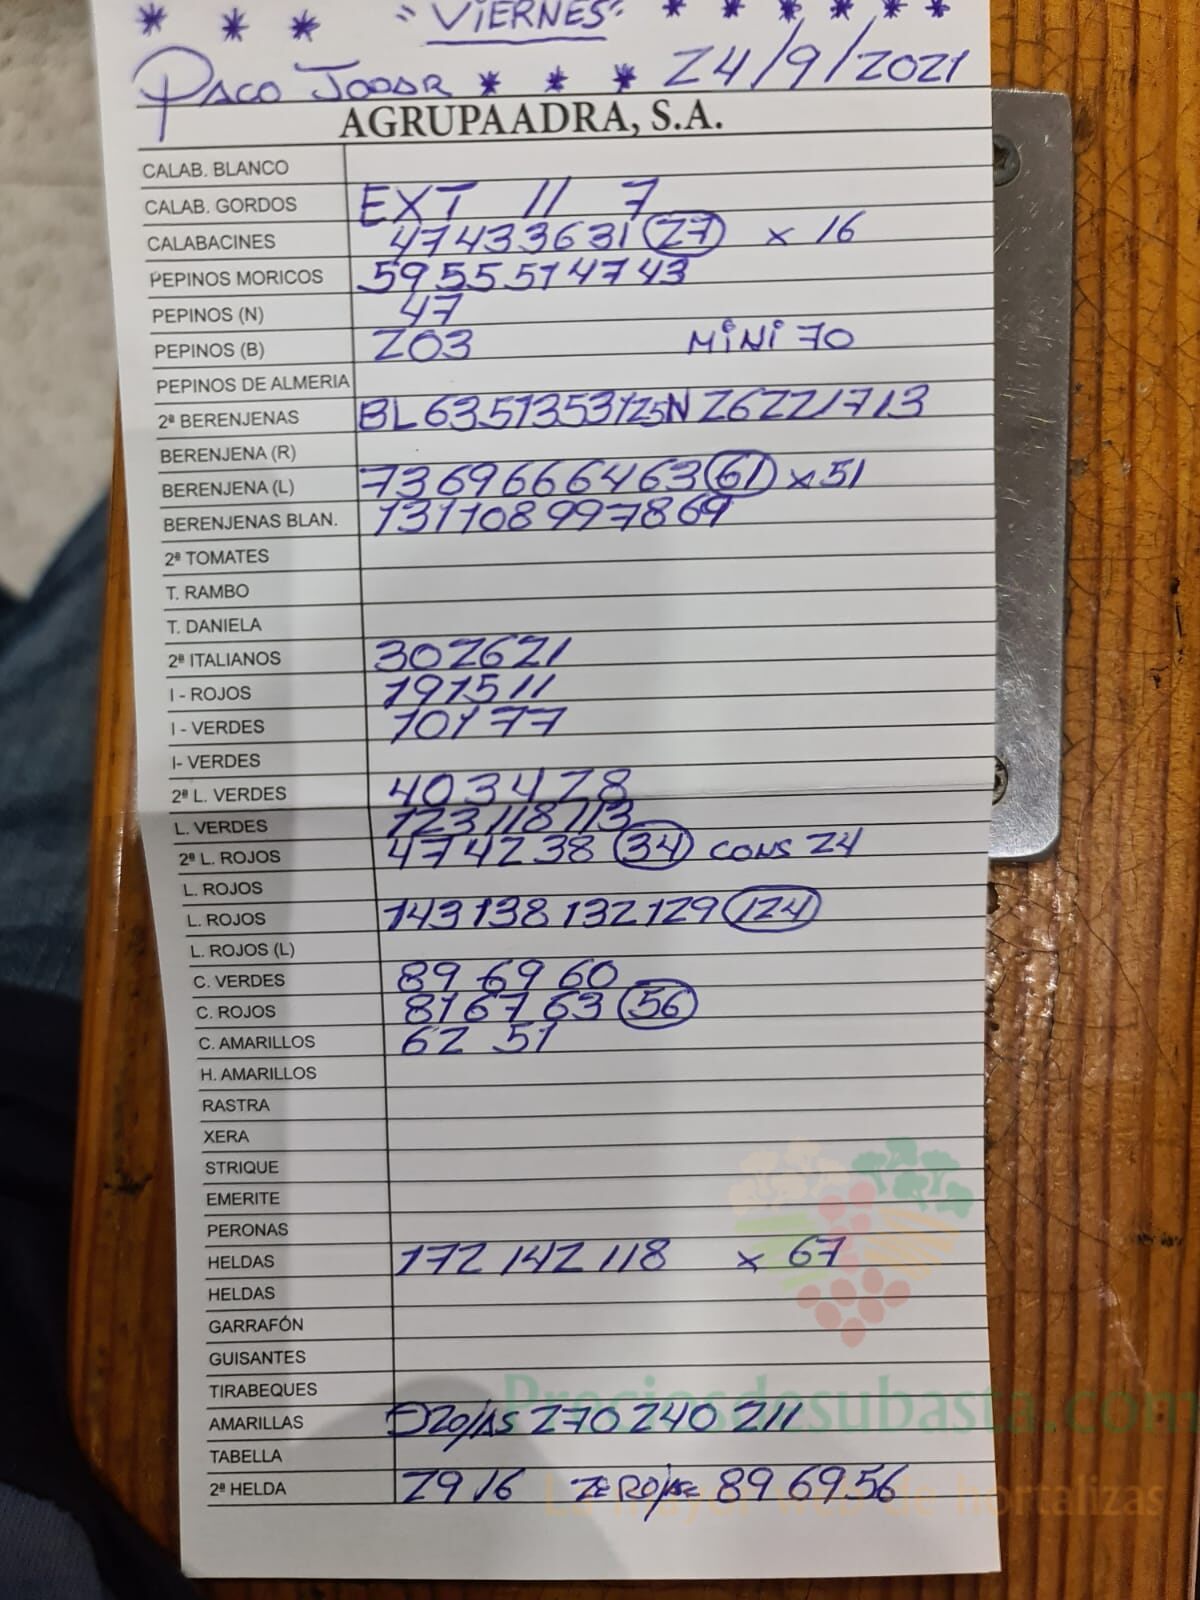 * * * "VIERNES" * * * * * *
PACO JODAR * * * 24/9/2021
AGRUPAADRA, S.A.
CALAB. BLANCO
CALAB. GORDOS EXT 11 7
CALABACINES 47 43 36 31 (27) x 16
PEPINOS MORICOS 59 55 51 47 43
PEPINOS (N) 47
PEPINOS (B) 203 MINI 70
PEPINOS DE ALMERIA
2ª BERENJENAS BL 63 51 35 31 25 N 26 22 17 13
BERENJENA (R)
BERENJENA (L) 73 69 66 64 63 (61) x 51
BERENJENAS BLAN. 131 108 99 78 69
2ª TOMATES
T. RAMBO
T. DANIELA
2ª ITALIANOS 30 26 21
I - ROJOS 191 511
I - VERDES 101 77
I- VERDES
2ª L. VERDES 40 34 28
L. VERDES 123 118 113
2ª L. ROJOS 47 42 38 (34) CONS 24
L. ROJOS
L. ROJOS 143 138 132 129 (124)
L. ROJOS (L)
C. VERDES 89 69 60
C. ROJOS 81 67 63 (56)
C. AMARILLOS 62 51
H. AMARILLOS
RASTRA
XERA
STRIQUE
EMERITE
PERONAS
HELDAS 172 142 118 x 67
HELDAS
GARRAFÓN
GUISANTES
TIRABEQUES
AMARILLAS 270 240 211
TABELLA
2ª HELDA 29 16 89 69 56
Preciosdesubasta.com
La mayor web de hortalizas